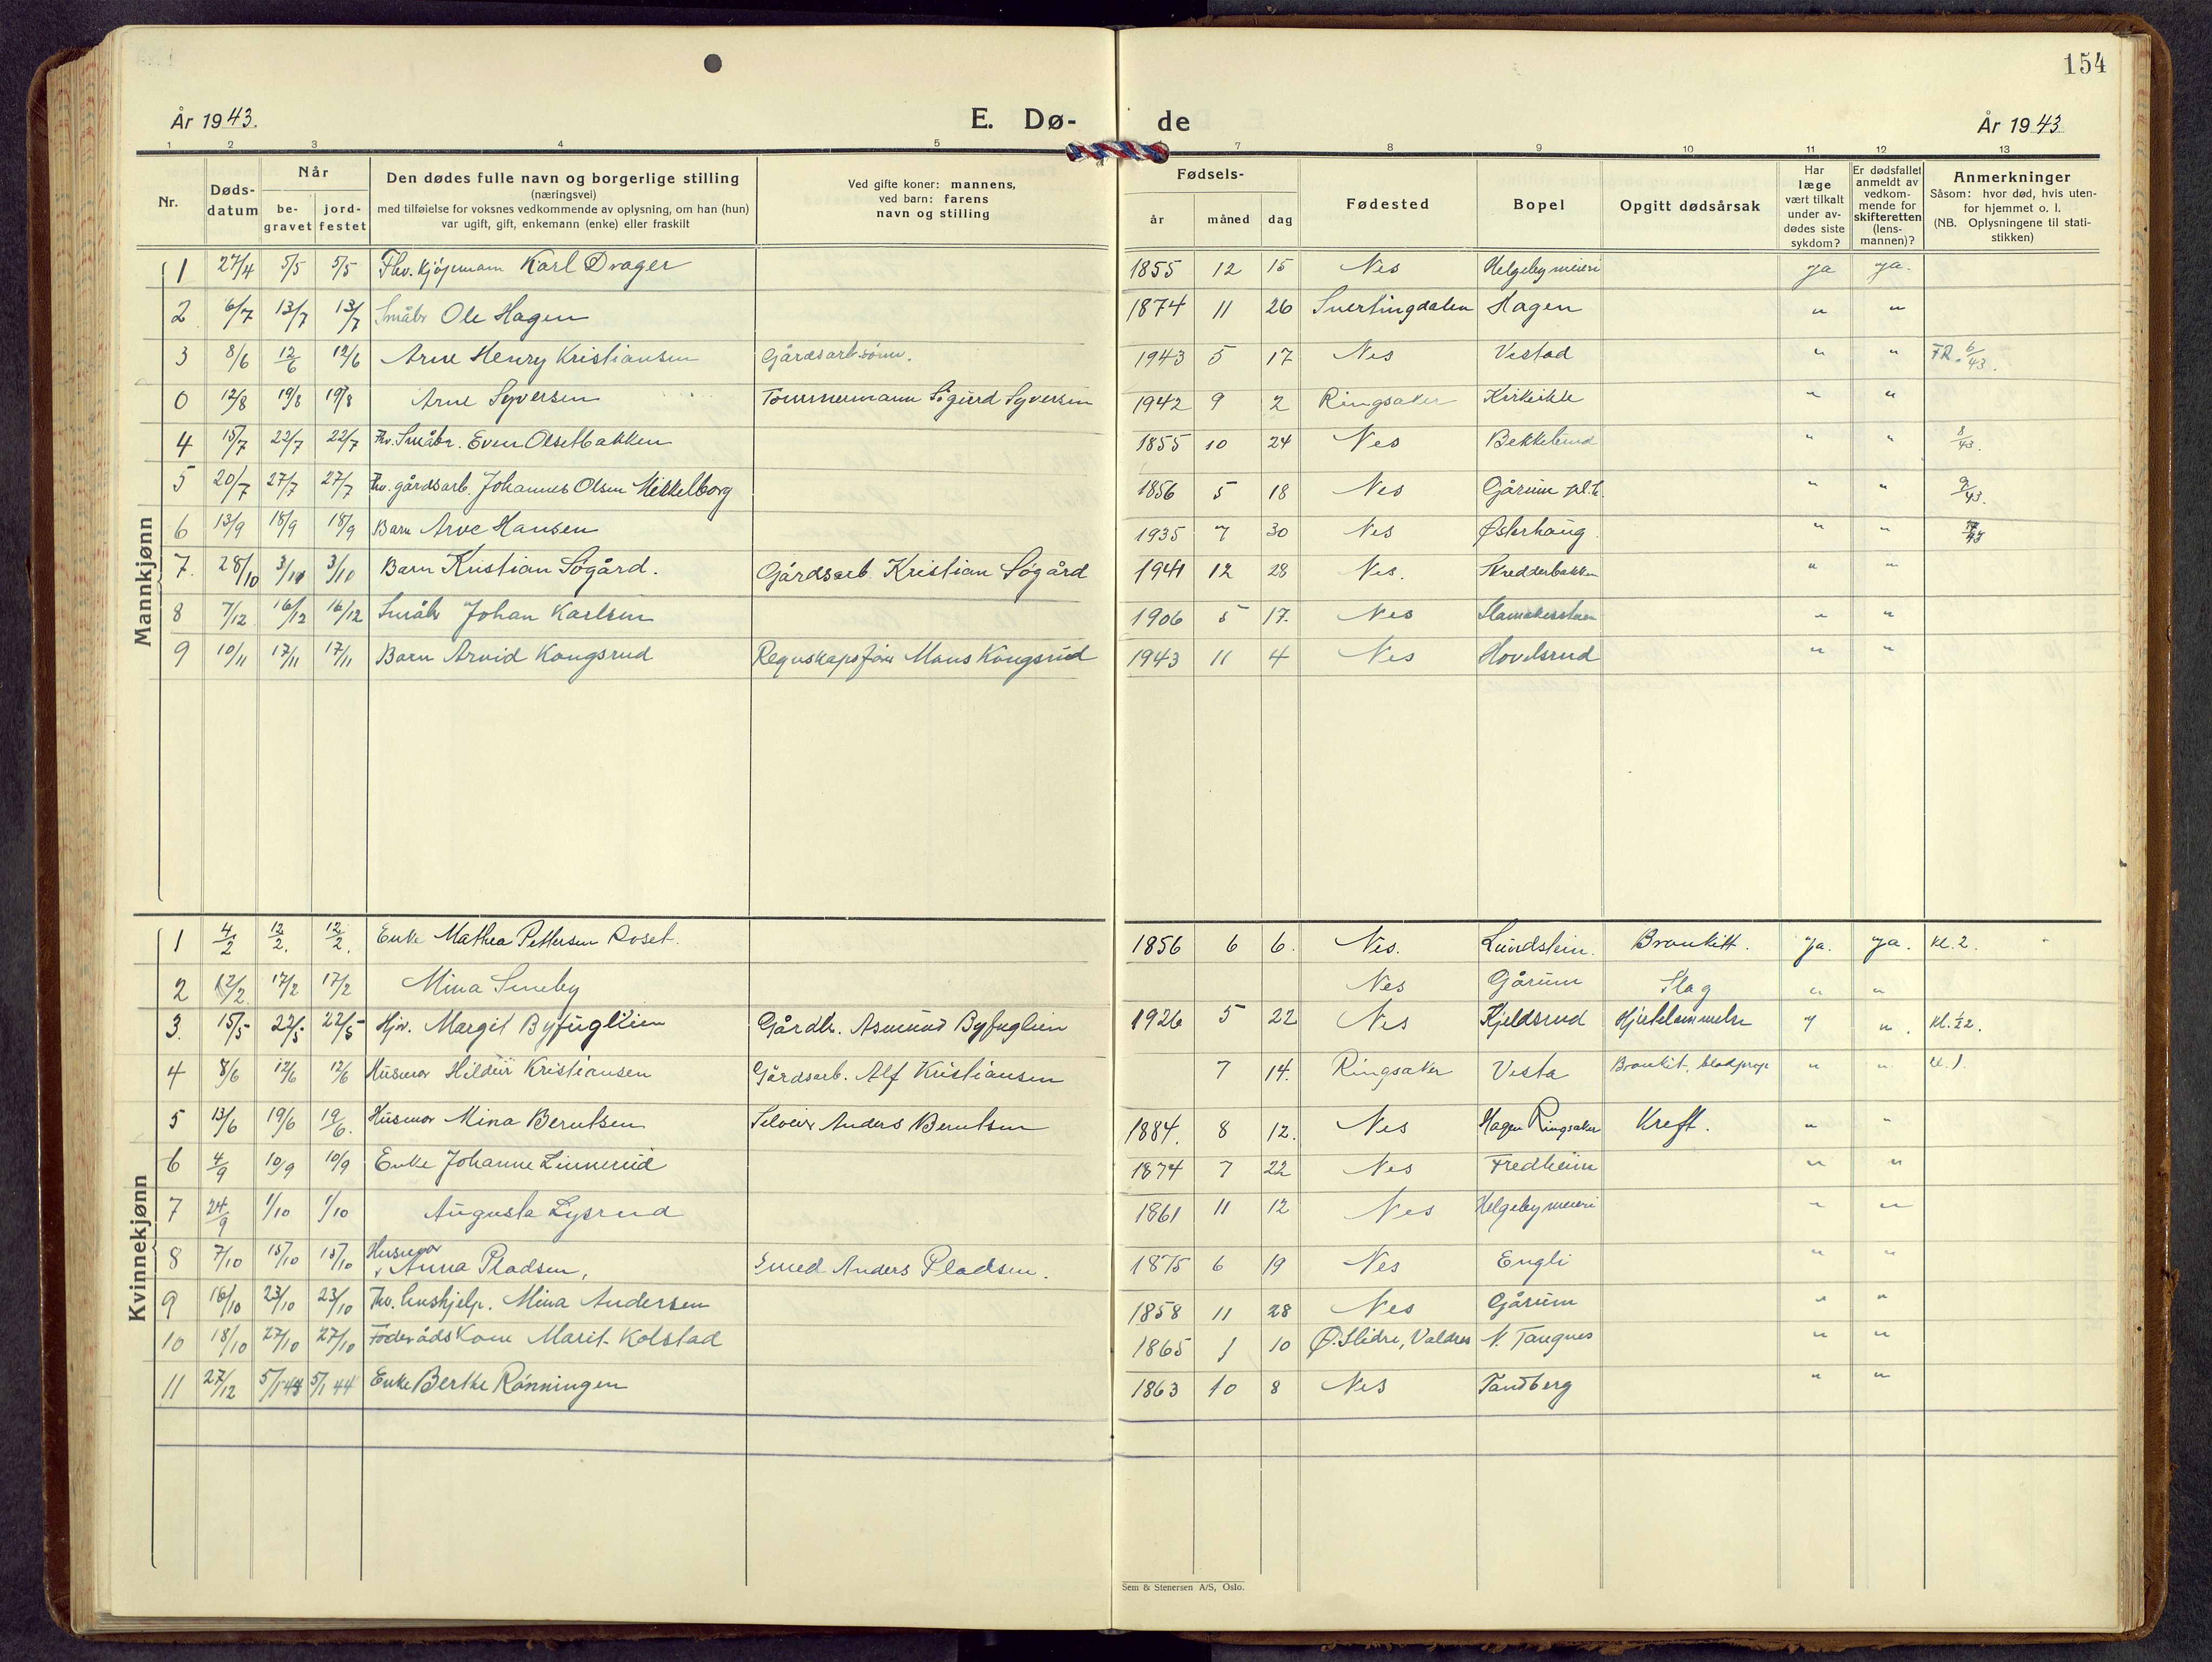 154
År 1943. E. Dø- de År 1943
1 2 3 4 5 7 8 9 10 11 12 13
Nr.
Døds-
datum
Når
be-
gravet
jord-
festet
Den dødes fulle navn og borgerlige stilling
(næringsvei)
med tilføielse for voksnes vedkommende av oplysning, om han (hun)
var ugift, gift, enkemann (enke) eller fraskilt
Ved gifte koner: mannens,
ved barn: farens
navn og stilling
Fødsels-
år måned dag
Fødested
Bopel
Opgitt dødsårsak
Har
læge
vært tilkalt
under av-
dødes siste
sykdom?
Er dødsfallet
anmeldt av
vedkom-
mende for
skifteretten
(lens-
mannen)?
Anmerkninger
Såsom: hvor død, hvis uten-
for hjemmet o. l.
(NB. Oplysningene til stati-
stikken)
Mannkjønn
1 27/4 5/5 5/5 Fhv. kjøpmann Karl Drager 1855 12 15 Nes Helgeby meieri ja ja.
2 6/7 13/7 13/7 Småbr Ole Hagen 1874 11 26 Snertingdalen Hagen " "
3 8/6 12/6 12/6 Arne Henry Kristiansen Gårdsarb.sønn. 1943 5 17 Nes Vestad " " FR. 6/43.
0 12/8 19/8 19/8 Arne Syversen Tømmermann Sigurd Syversen 1942 9 2 Ringsaker Kirkeikk " "
4 15/7 22/7 22/7 Fhv. Småbr. Even Olsetbakken 1855 10 24 Nes Bekkelund " " 8/43.
5 20/7 27/7 27/7 Fhv. gårdsarb. Johannes Olsen Mikkelborg 1856 5 18 Nes Gårum pl.h. " " 9/43.
6 13/9 18/9 18/9 Barn Arve Hansen 1935 7 30 Nes Østerhaug. " "
7. 28/10 3/10 3/10 Barn Kristian Søgård. Gårdsarb. Kristian Søgård 1941 12 28 Nes. Skredderbakken " "
8 7/12 16/12 16/12 Småbr Johan Karlsen 1906 5 17. Nes " "
9 10/11 17/11 17/11 Barn Arvid Kongsrud Regnskapsfører Mons Kongsrud 1943 11 4 Nes Hovelsrud " "
Kvinnekjønn
1 4/2 12/2. 12/2. Enke Mathea Pettersen Roset. 1856 6 6. Nes. Lundstein. Bronkitt. ja. ja. kl. 2.
2 12/2. 17/2 17/2 Mina Smeby Nes Gårum Slag " "
3. 15/5 22/5 22/5 Hjv. Margit Byfuglien Gårdbr. Asmund Byfuglien 1926 5 22 Nes Kjeldsrud Hjertelammelse " ". kl. 1/22.
4 8/6 12/6 12/6 Husmor Hildur Kristiansen Gårdsarb. Alf Kristiansen 7 14. Ringsaker Vesta Bronkit, blodprop " " kl. 1.
5 13/6 19/6 19/6. Husmor Mina Berntsen Selveier Anders Berntsen 1884. 8 12. Nes Hagen Ringsaker Kreft. " "
6 4/9 10/9 10/9 Enke Johanne Linnerud 1874 7 22 Nes Fredheim " "
7 24/9 1/10 1/10 Augusta Lysrud 1861 11 12 Nes Helgeby meieri " "
8 7/10 15/10 15/10 Husmor Anna Pladsen, Smed Anders Pladsen. 1875 6 19 Nes Engli " "
9 16/10 23/10 23/10 Fhv. hushjelp. Mina Andersen 1858 11 28 Nes Gårum " "
10 18/10 27/10 27/10 Føderådskone Marit Kolstad 1865 1 10 Ø. Slidre, Valdres N. Tangnes " "
11 27/12 5/1 44 5/1 44 Enke Berthe Rønningen 1863 10 8 Nes Tandberg " "
Sem & Stenersen A/S, Oslo.